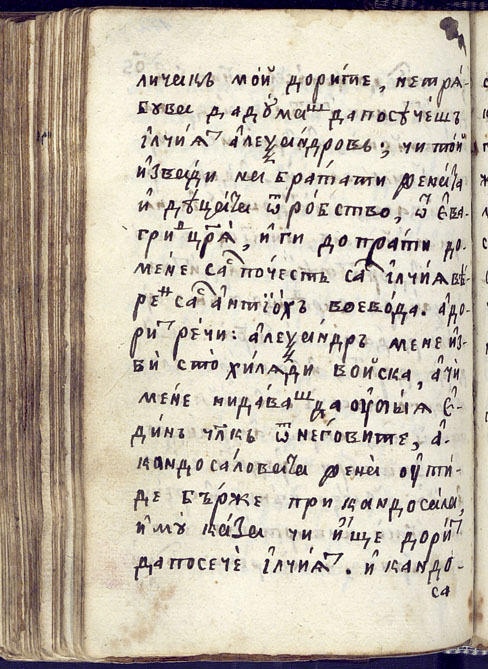 личакъ мой дорите, нетрѧ-
бува да дꙋмашъ да посꙋчешъ
ілчиѧт алеѯандровь; чи той
извади на братати ѳената
и дѣцата ѿ робство, ѿ ева-
гри црѧ, и ги допрати до
мене сас почесть сас ілчиѧ ве-
рен сас антіохъ воевода. а до-
рит речи: алеѯандръ мене из-
би сто хилѧди воиска, а чи
мене нидаваш да оубиѧ е-
динъ чл҃къ ѿ неговите, а
кандосаловата ѳена оути-
де бърже при кандосала,
и мꙋ каза чи ище дорит
да посече ілчиѧт. и кандо-
са